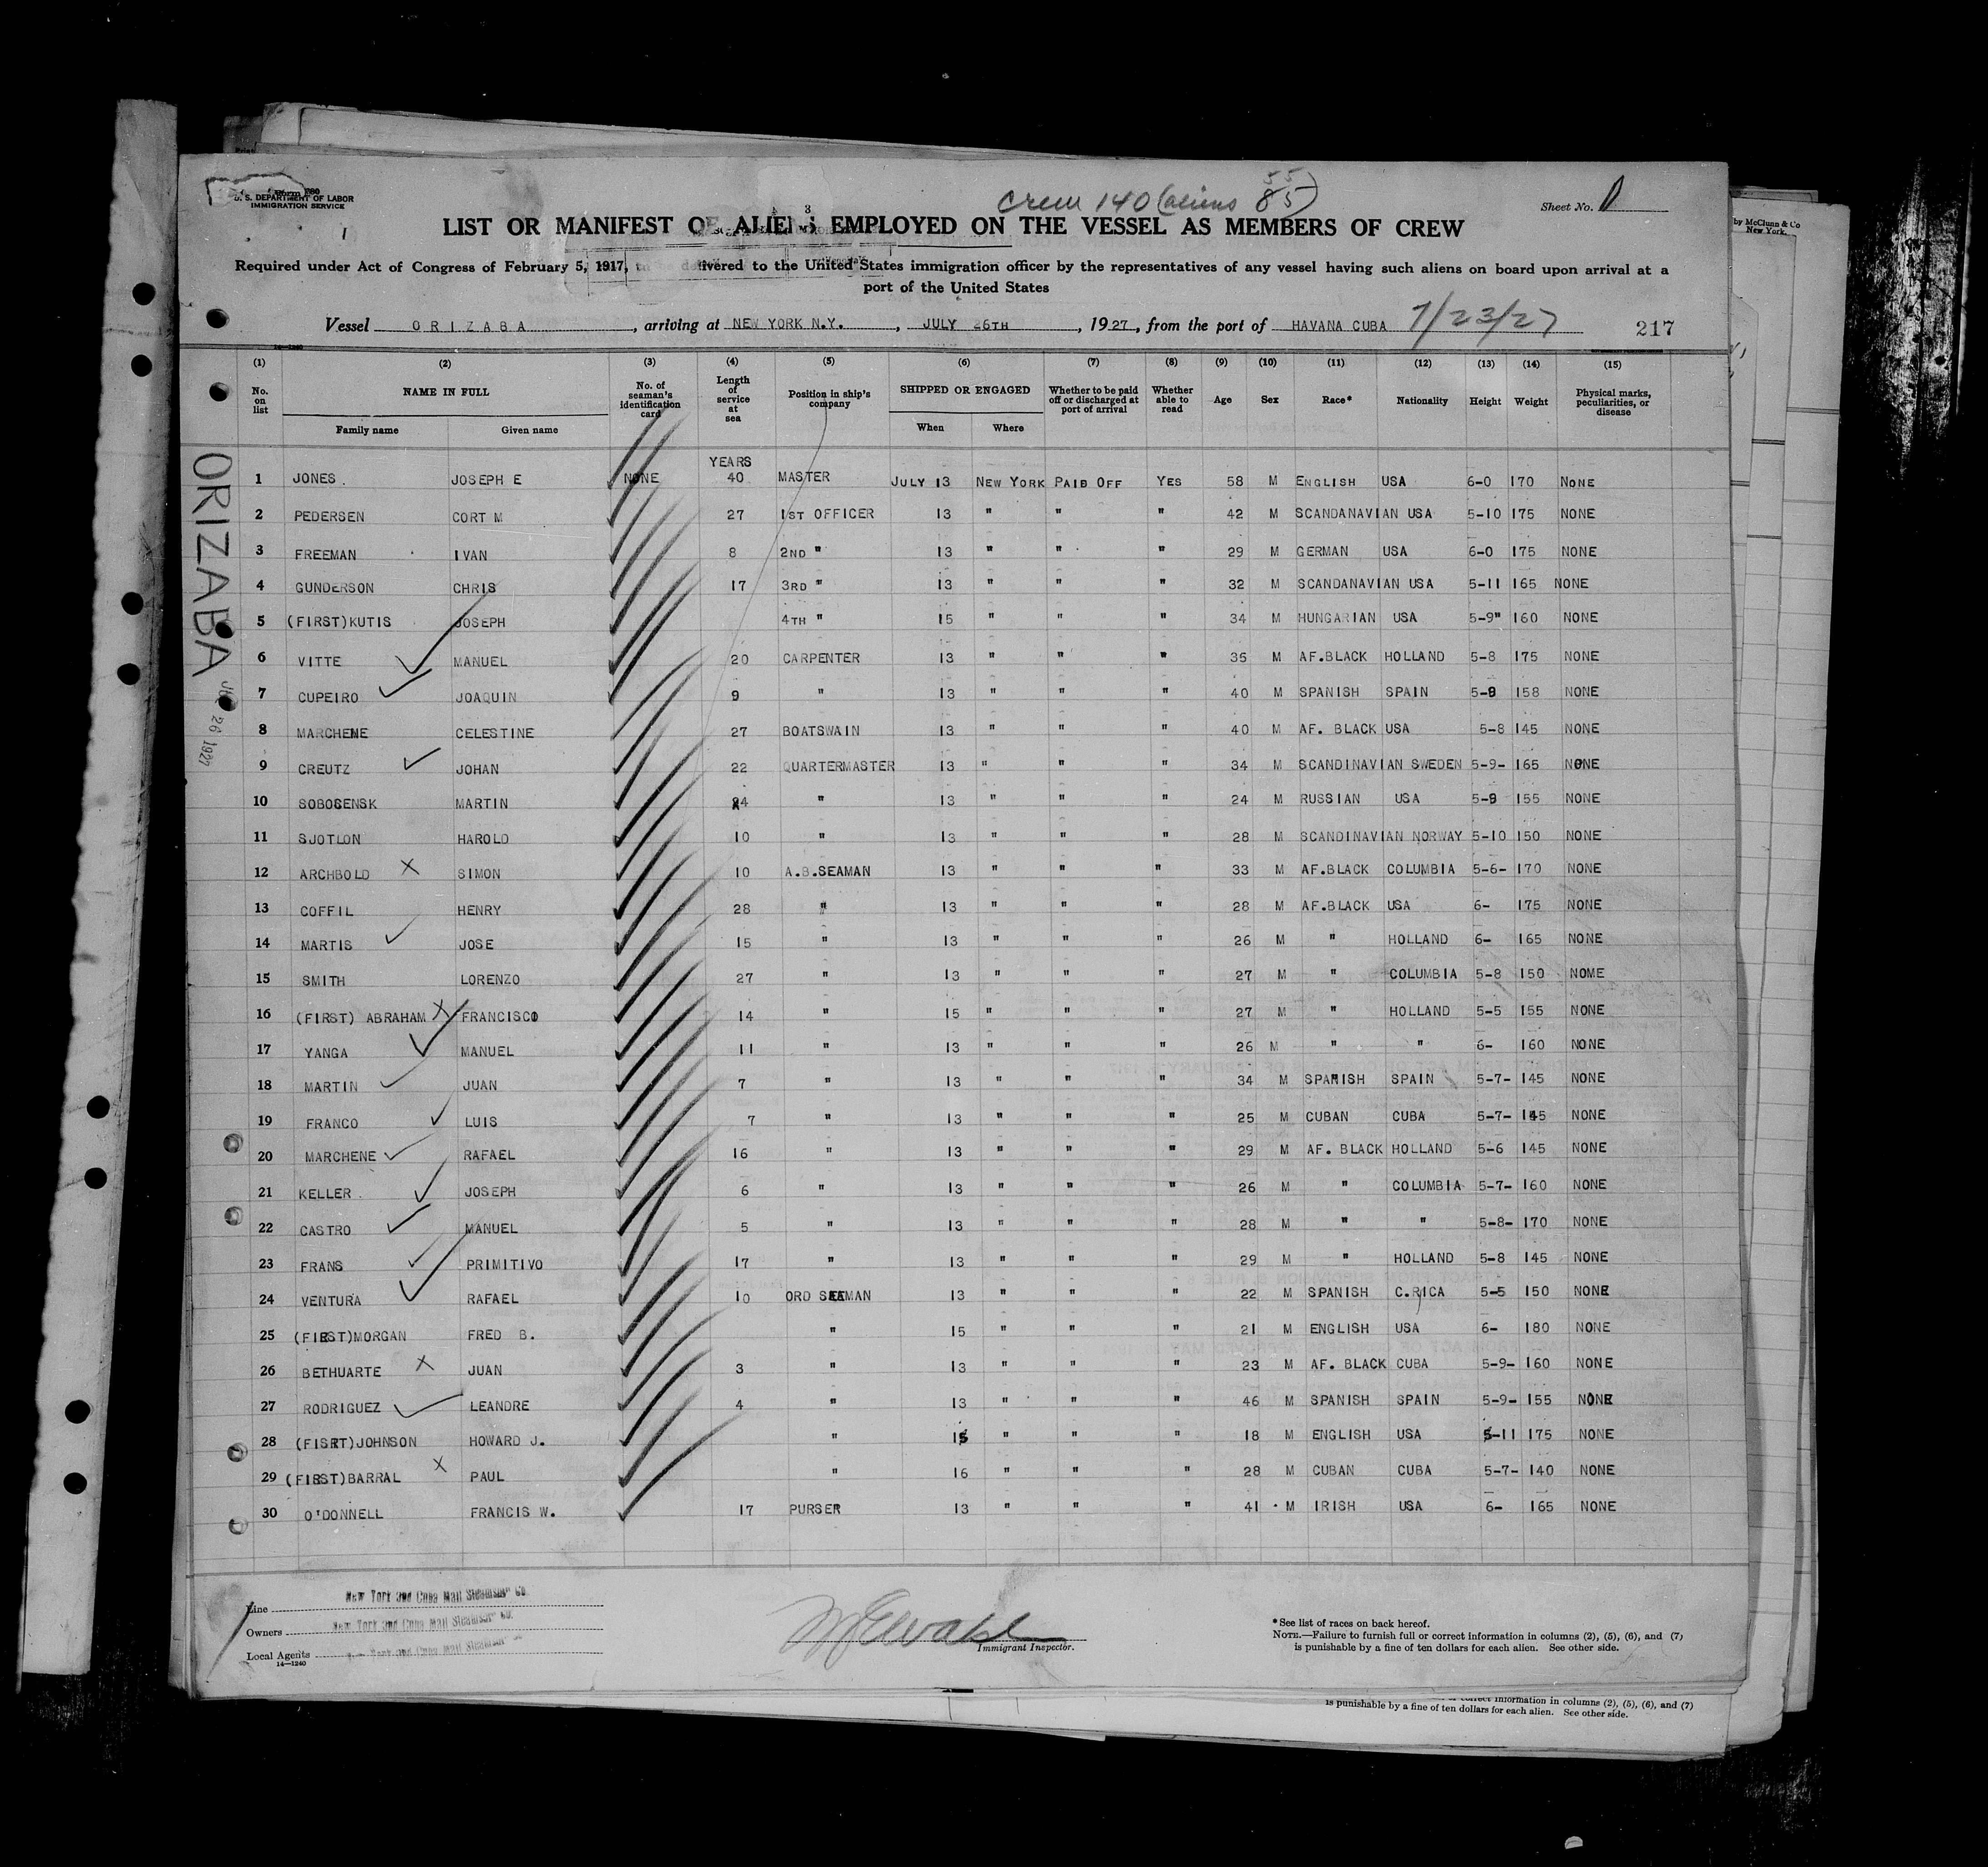 Form 680
U. S. DEPARTMENT OF LABOR
IMMIGRATION SERVICE
Crew 140 (aliens 85)
55
Sheet No. 1
LIST OR MANIFEST OF ALIENS EMPLOYED ON THE VESSEL AS MEMBERS OF CREW
Required under Act of Congress of February 5, 1917, to be delivered to the United States immigration officer by the representatives of any vessel having such aliens on board upon arrival at a
port of the United States
Vessel ORIZABA, arriving at NEW YORK N.Y., JULY 26TH, 1927, from the port of HAVANA CUBA 7/23/27 217
(1) (2) (3) (4) (5) (6) (7) (8) (9) (10) (11) (12) (13) (14) (15)
No. on list NAME IN FULL Family name Given name No. of seaman's identification card Length of service at sea Position in ship's company SHIPPED OR ENGAGED When Where Whether to be paid off or discharged at port of arrival Whether able to read Age Sex Race* Nationality Height Weight Physical marks, peculiarities, or disease
YEARS
1 JONES JOSEPH E NONE 40 MASTER JULY 13 NEW YORK PAID OFF YES 58 M ENGLISH USA 6-0 170 NONE
2 PEDERSEN CORT M 27 1ST OFFICER 13 " " " 42 M SCANDANAVIAN USA 5-10 175 NONE
3 FREEMAN IVAN 8 2ND " 13 " " " 29 M GERMAN USA 6-0 175 NONE
4 GUNDERSON CHRIS 17 3RD " 13 " " " 32 M SCANDANAVIAN USA 5-11 165 NONE
5 (FIRST)KUTIS JOSEPH 4TH " 15 " " " 34 M HUNGARIAN USA 5-9" 160 NONE
6 VITTE MANUEL 20 CARPENTER 13 " " " 35 M AF.BLACK HOLLAND 5-8 175 NONE
7 CUPEIRO JOAQUIN 9 " 13 " " " 40 M SPANISH SPAIN 5-9 158 NONE
8 MARCHENE CELESTINE 27 BOATSWAIN 13 " " " 40 M AF. BLACK USA 5-8 145 NONE
9 CREUTZ JOHAN 22 QUARTERMASTER 13 " " " 34 M SCANDINAVIAN SWEDEN 5-9- 165 NONE
10 SOBOSENSK MARTIN 24 " 13 " " " 24 M RUSSIAN USA 5-9 155 NONE
11 SJOTLON HAROLD 10 " 13 " " " 28 M SCANDINAVIAN NORWAY 5-10 150 NONE
12 ARCHBOLD SIMON 10 A.B.SEAMAN 13 " " " 33 M AF.BLACK COLUMBIA 5-6- 170 NONE
13 COFFIL HENRY 28 " 13 " " " 28 M AF.BLACK USA 6- 175 NONE
14 MARTIS JOSE 15 " 13 " " " 26 M " HOLLAND 6- 165 NONE
15 SMITH LORENZO 27 " 13 " " " 27 M " COLUMBIA 5-8 150 NOME
16 (FIRST) ABRAHAM FRANCISCO 14 " 15 " " " 27 M " HOLLAND 5-5 155 NONE
17 YANGA MANUEL 11 " 13 " " " 26 M " " 6- 160 NONE
18 MARTIN JUAN 7 " 13 " " " 34 M SPANISH SPAIN 5-7- 145 NONE
19 FRANCO LUIS 7 " 13 " " " 25 M CUBAN CUBA 5-7- 145 NONE
20 MARCHENE RAFAEL 16 " 13 " " " 29 M AF. BLACK HOLLAND 5-6 145 NONE
21 KELLER JOSEPH 6 " 13 " " " 26 M " COLUMBIA 5-7- 160 NONE
22 CASTRO MANUEL 5 " 13 " " " 28 M " " 5-8- 170 NONE
23 FRANS PRIMITIVO 17 " 13 " " " 29 M " HOLLAND 5-8 145 NONE
24 VENTURA RAFAEL 10 ORD SEAMAN 13 " " " 22 M SPANISH C.RICA 5-5 150 NONE
25 (FIRST)MORGAN FRED B. " 15 " " " 21 M ENGLISH USA 6- 180 NONE
26 BETHUARTE JUAN 3 " 13 " " " 23 M AF. BLACK CUBA 5-9- 160 NONE
27 RODRIGUEZ LEANDRE 4 " 13 " " " 46 M SPANISH SPAIN 5-9- 155 NONE
28 (FISRT)JOHNSON HOWARD J. " 15 " " " 18 M ENGLISH USA 5-11 175 NONE
29 (FIRST)BARRAL PAUL " 16 " " " 28 M CUBAN CUBA 5-7- 140 NONE
30 O'DONNELL FRANCIS W. 17 PURSER 13 " " " 41 M IRISH USA 6- 165 NONE
ORIZABA
26 1927
Line New York and Cuba Mail Steamship Co.
Owners New York and Cuba Mail Steamship Co.
Local Agents York and Cuba Mail Steamship
14—1240
Immigrant Inspector.
*See list of races on back hereof.
NOTE.—Failure to furnish full or correct information in columns (2), (5), (6), and (7)
is punishable by a fine of ten dollars for each alien. See other side.
correct information in columns (2), (5), (6), and (7)
is punishable by a fine of ten dollars for each alien. See other side.
by McClunn & Co
New York.